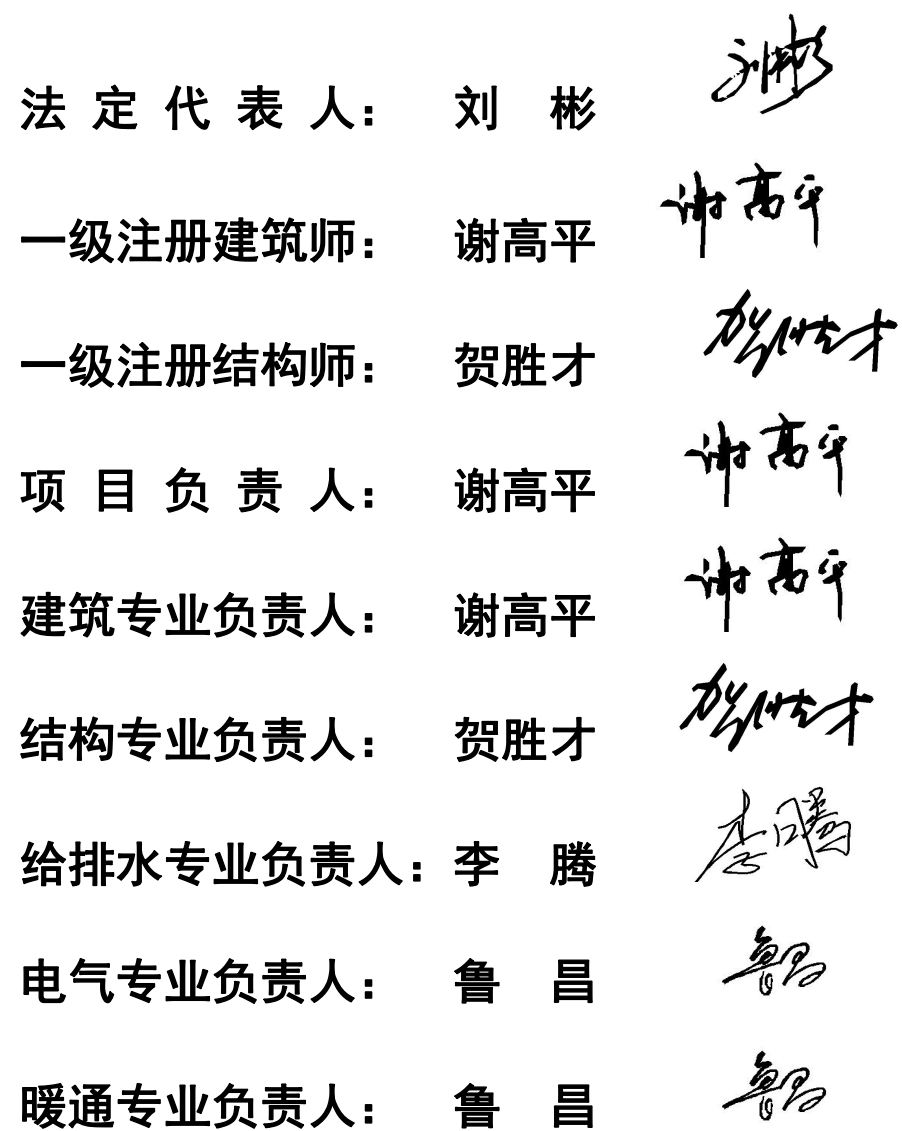 法定代表人： 刘 彬 刘彬
一级注册建筑师： 谢高平 谢高平
一级注册结构师： 贺胜才 贺胜才
项目负责人： 谢高平 谢高平
建筑专业负责人： 谢高平 谢高平
结构专业负责人： 贺胜才 贺胜才
给排水专业负责人：李 腾 李腾
电气专业负责人： 鲁 昌 鲁昌
暖通专业负责人： 鲁 昌 鲁昌